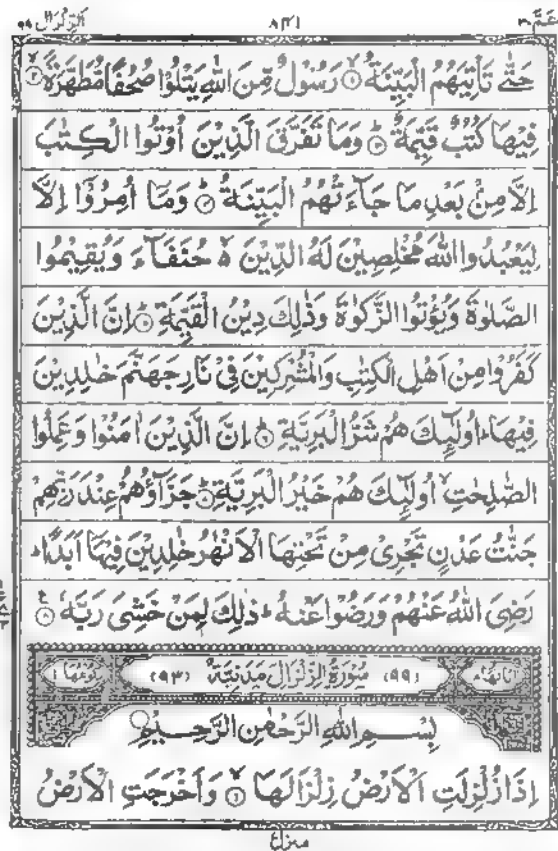 عَمَّ ٣٠ ٨٤١ اَلزِّلْزَال ٩٩
حَتّٰى تَاْتِيَهُمُ الْبَيِّنَةُ ۙ﴿۱﴾ رَسُوْلٌ مِّنَ اللّٰهِ يَتْلُوْا صُحُفًا مُّطَهَّرَةً ۙ﴿۲﴾
فِيْهَا كُتُبٌ قَيِّمَةٌ ؕ﴿۳﴾ وَمَا تَفَرَّقَ الَّذِيْنَ اُوْتُوا الْكِتٰبَ
اِلَّا مِنْۢ بَعْدِ مَا جَآءَتْهُمُ الْبَيِّنَةُ ؕ﴿۴﴾ وَمَاۤ اُمِرُوْۤا اِلَّا
لِيَعْبُدُوا اللّٰهَ مُخْلِصِيْنَ لَهُ الدِّيْنَ ۙ حُنَفَآءَ وَيُقِيْمُوا
الصَّلٰوةَ وَيُؤْتُوا الزَّكٰوةَ وَذٰلِكَ دِيْنُ الْقَيِّمَةِ ؕ﴿۵﴾ اِنَّ الَّذِيْنَ
كَفَرُوْا مِنْ اَهْلِ الْكِتٰبِ وَالْمُشْرِكِيْنَ فِيْ نَارِ جَهَنَّمَ خٰلِدِيْنَ
فِيْهَا ؕ اُولٰٓئِكَ هُمْ شَرُّ الْبَرِيَّةِ ؕ﴿۶﴾ اِنَّ الَّذِيْنَ اٰمَنُوْا وَعَمِلُوا
الصّٰلِحٰتِ ۙ اُولٰٓئِكَ هُمْ خَيْرُ الْبَرِيَّةِ ؕ﴿۷﴾ جَزَآؤُهُمْ عِنْدَ رَبِّهِمْ
جَنّٰتُ عَدْنٍ تَجْرِيْ مِنْ تَحْتِهَا الْاَنْهٰرُ خٰلِدِيْنَ فِيْهَاۤ اَبَدًا ؕ
رَضِيَ اللّٰهُ عَنْهُمْ وَرَضُوْا عَنْهُ ؕ ذٰلِكَ لِمَنْ خَشِيَ رَبَّهٗ ﴿۸﴾
اٰيَاتُهَا ٨ (٩٩) سُوْرَةُ الزِّلْزَالِ مَدَنِيَّةٌ (٩٣) رُكُوْعُهَا ١
بِسْمِ اللّٰهِ الرَّحْمٰنِ الرَّحِيْمِ
اِذَا زُلْزِلَتِ الْاَرْضُ زِلْزَالَهَا ۙ﴿۱﴾ وَاَخْرَجَتِ الْاَرْضُ